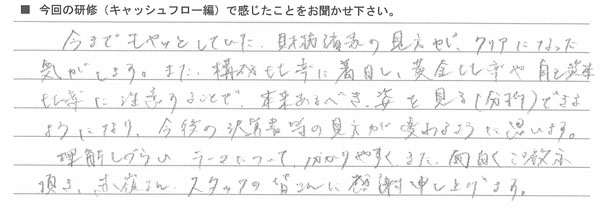 ■ 今回の研修（キャッシュフロー編）で感じたことをお聞かせ下さい。
今までモヤッとしていた、財務諸表の見方が、クリアになった
気がします。また、構成比率に着目し、黄金比率や自己資本
比率に注意することで、本来あるべき姿を見る（分析）できる
ようになり、今後の決算書等の見方が変わるように思います。
理解しづらいテーマについて、分かりやすく、また、面白くご教示
頂き、赤嶺さん、スタッフの皆さんに感謝申し上げます。